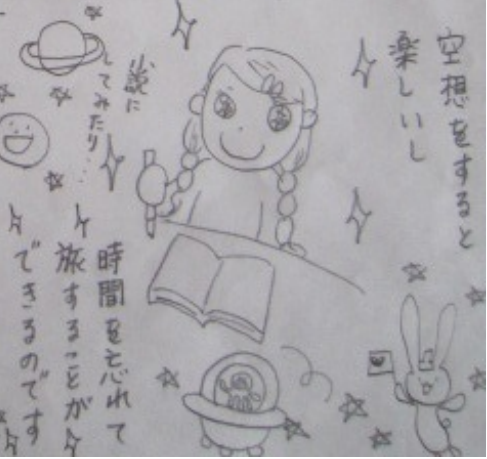 空想をすると
楽しいし
小説に
してみたり…
時間を忘れて
旅することが
できるのです